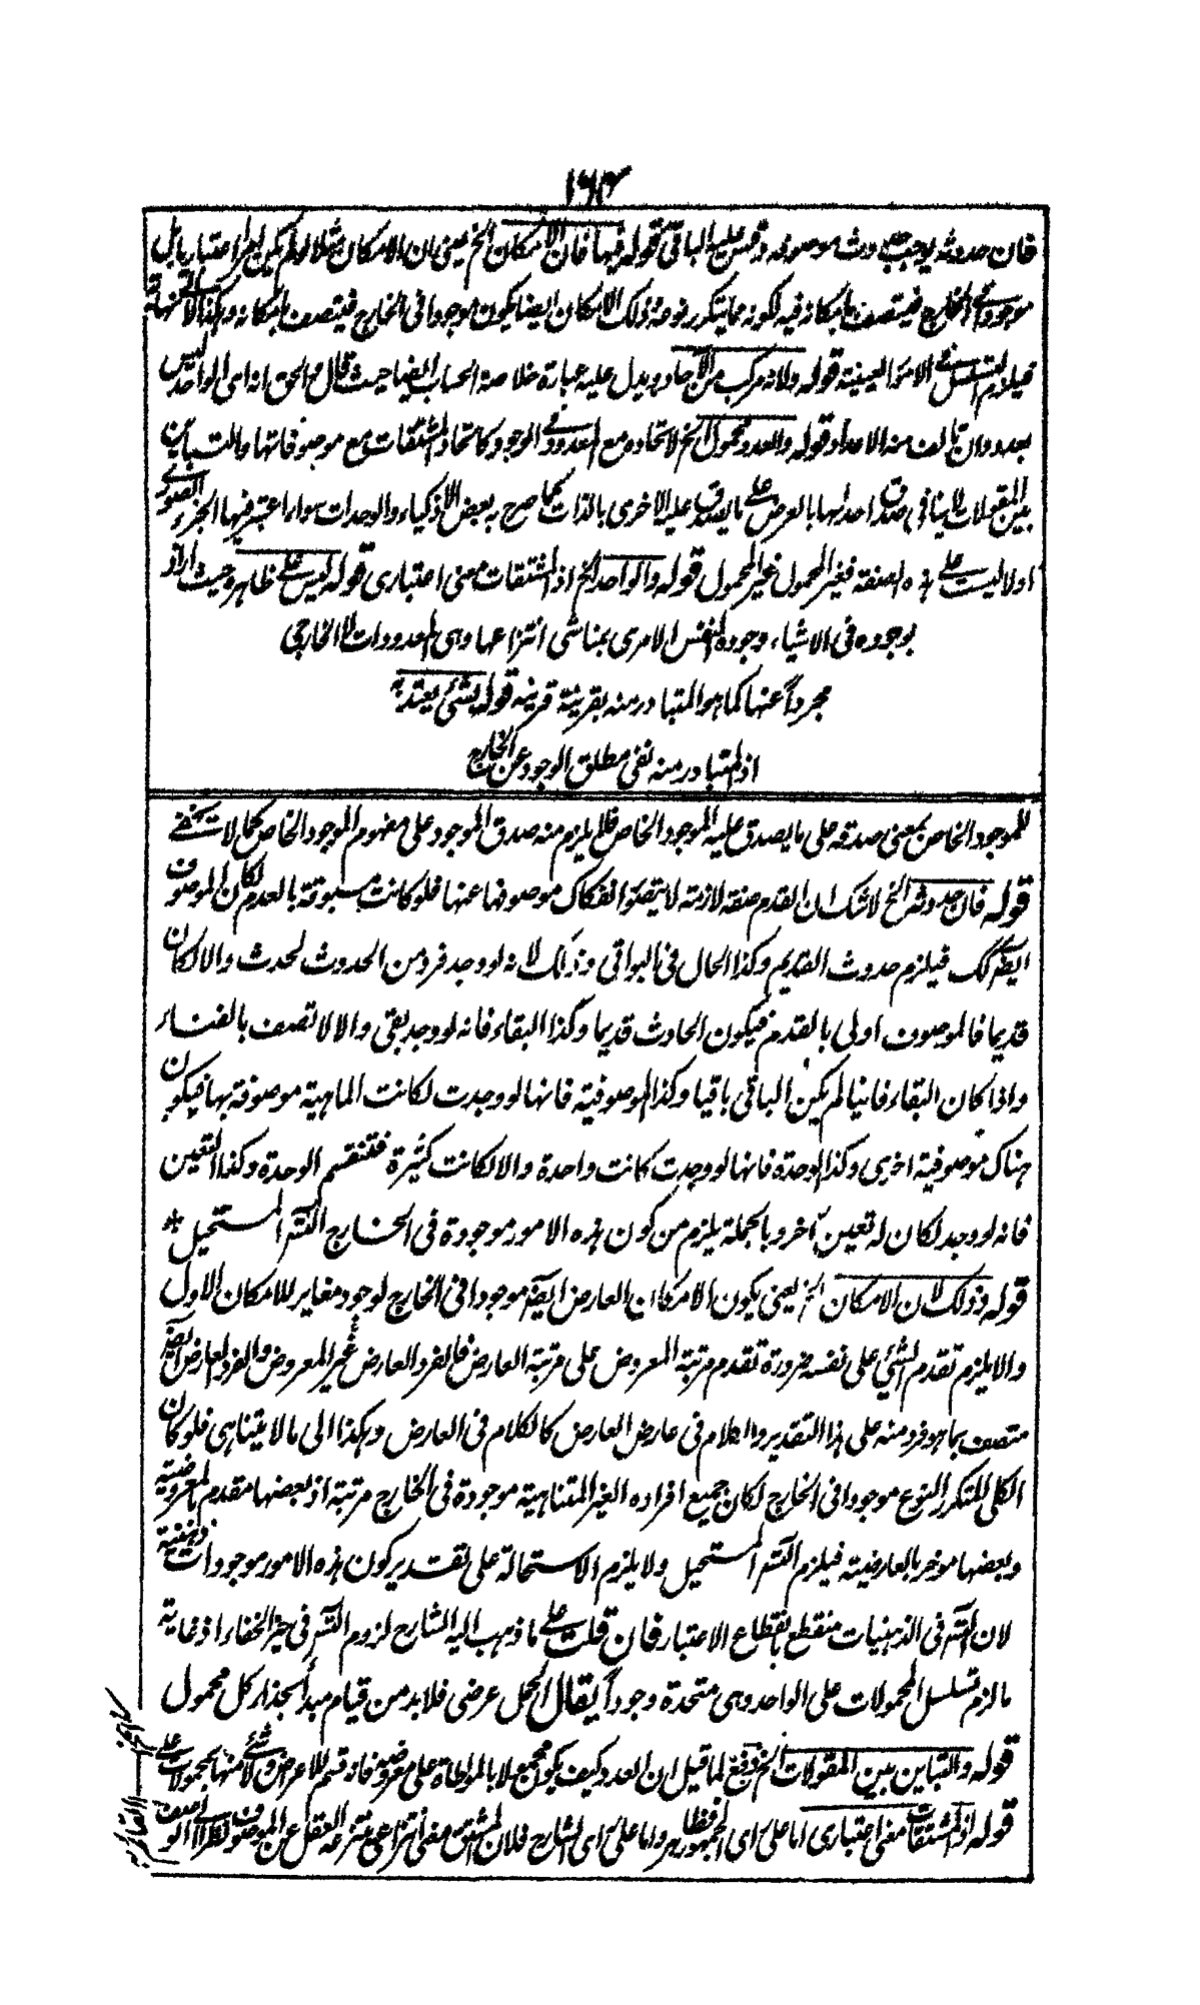 ١٦٤
فان حدوثه يوجب حدوث موصوفه وقس عليه الباقى قوله فيها فان الامكان الخ يعنى ان الامكان مثلا لو لم يكن امرا اعتباريا بل
موجودا فى الخارج فيتصف بامكانه فيه لكونه مما يتكرر نوعه وذلك الامكان ايضا يكون موجودا فى الخارج فيتصف بامكانه وهكذا الى
فيلزم التسلسل فى الامور العينية قوله ولانه مركب من الآحاد ويدل عليه عبارة خلاصة الحساب ايضا حيث قال والحق انه اى الواحد ليس
بعدد وان تألف منه الاعداد قوله والعدد محمول الخ لاتحاده مع المعدود فى الوجود كاتحاد المشتقات مع موصوفاتها والتباين
بين المقولات لا ينافى صدق احدلها بالعرض على ما يصدق عليه الاخرى بالذات كما صرح به بعض الاذكياء والوحدات سواء اعتبر فيها الجزء الصورى
اولا ليست على هذه الصفة فغير المحمول غير المحمول قوله والواحد الخ اذ المشتقات معنى اعتبارى قوله ليس على ظاهره حيث اراد
بوجوده فى الاشياء وجوده النفس الامرى بمناشى انتزاعها وهى المعدودات لا الخارجى
مجرداً عنها كما هو المتبادر منه بقرينة قرينه قوله بشئ يعتد به
اذ المتبادر منه نفى مطلق الوجود عن الخارج
للموجود الخاص بمعنى صدقه على ما يصدق عليه الموجود الخاص فلم يلزم منه صدق الموجود على مفهوم الموجود الخاص كما لا يخفى
قوله فان حدوثه الخ لا شك ان القدم صفة لازمة لا يتصور انفكاك موصوفها عنها فلو كانت مسبوقة بالعدم لكان الموصوف
ايضا كك فيلزم حدوث القديم وكذا الحال فى البواقى وذلك لانه لو وجد فرد من الحدوث لحدث والا لكان
قديما فالموصوف اولى بالقدم فيكون الحادث قديما وكذا البقاء فانه لو وجد بقى والا لاتصف بالفناء
واذا كان البقاء فانيا لم يكن الباقى باقيا وكذا الموصوفية فانها لو وجدت لكانت الماهية موصوفة بها فيكون
هناك موصوفية اخرى وكذا الوحدة فانها لو وجدت كانت واحدة والا لكانت كثيرة فتنقسم الوحدة وكذا التعين
فانه لو وجد لكان له تعين آخر وبالجملة يلزم من كون هذه الامور موجودة فى الخارج التسـ المستحيل *
قوله وذلك لان الامكان الخ يعنى يكون الامكان العارض ايضا موجودا فى الخارج لوجود مغاير للامكان الاول
والا يلزم تقدم الشئ على نفسه ضرورة تقدم مرتبة المعروض على مرتبة العارض فالفرد العارض غير المعروض والفرد العارض ايضا
متصف بما هو فرد منه على هذا التقدير والكلام فى عارض العارض كالكلام فى العارض وهكذا الى ما لا يتناهى فلو كان
الكلى المتكرر النوع موجودا فى الخارج لكان جميع افراده الغير المتناهية موجودة فى الخارج مرتبة اذ بعضها مقدم بالمعروضية
وبعضها موخر بالعارضية فيلزم التسـ المستحيل ولا يلزم الاستحالة على تقدير كون هذه الامور موجودات ذهنية
لان التسـ فى الذهنيات منقطع بانقطاع الاعتبار فان قلت على ما ذهب اليه الشارح لزوم التسـ فى حيز الخفاء اذ غاية
ما لزم تسلسل المحمولات على الواحد وهى متحدة وجوداً يقال الحمل عرضى فلا بد من قيام مبدأ بحذاء كل محمول
قوله والتباين بين المقولات الخ دفع لما قيل ان العدد كيف يكون محمولا بالمواطاة على معروضه فانه قسم للاعراض ولا شئ منها بمحمولات على
قوله اذ المشتقات معنى اعتبارى اما على رأى الجمهور فظاهر واما على رأى الشارح فلان المشتق معنى انتزاعى ينتزعه العقل عن الموصوف نظرا الى الوصف